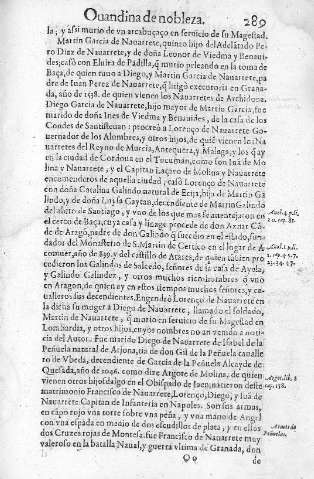 Ouandina de nobleza. 289
la; y assi murio de vn arcabuçaço en seruicio de su Magestad.
Martin Garcia de Nauarrete, quinto hijo del Adelãtado Pe-
ro Diaz de Nauarrete, y de doña Leonor de Viedma y Benaui-
des; casò con Eluira de Padilla, q̃ murio peleando en la toma de
Baça, de quien nació a Diego, y Martin Garcia de Nauarrete, pa
dre de Iuan Perez de Nauarrete, q̃ litigò executoria en Grana-
da, año de 1538. de quien vienen los Nauarretes de Archidona.
Diego Garcia de Nauarrete, hijo mayor de Martin Garcia, fue
marido de doña Ines de Viedma y Benauides, de la casa de los
Condes de Santisteuan: procreò a Lorenço de Nauarrete Go-
uernador de los Alombres, y otros hijos, de quiẽ vienen los Na-
uarretes del Reyno de Murcia, Antequera, y Malaga, y los q̃ ay
en la ciudad de Cordoua en el Tucuman, como son Iuã de Mo
lina y Nauarrete, y el Capitan Laçaro de Molina y Nauarrete
encomenderos de aquella ciudad; casò Lorenço de Nauarrete
con doña Catalina Galindo natural de Ecija, hija de Martin Ga
lindo, y de doña Luisa Gaytan, decendiente de Martin Galindo
del abito de Santiago, y vno de los que mas se auentajaron en
el cerco de Baça, cuya casa y linage procede de don Aznar Cõ-
de de Aragõ, padre de don Galindo q̃ sucedio en el estado, fun-
dador del Monasterio de S. Martin de Cercito en el lugar de A
comuer, año de 839. y del castillo de Atares, de quien tãbien pro
cedieron los Galindos de Salcedo, señores de la casa de Ayala,
y Galindo Galindez, y otros muchos ricoshombres q̃ vuo
en Aragon, de quien ay en estos tiempos muchos señores, y ca-
ualleros sus decendientes. Engendrò Lorenço de Nauarrete en
la dicha su muger a Diego de Nauarrete, llamado el soldado,
Martin de Nauarrete, q̃ murio en seruicio de su Magestad en
Lombardia, y otros hijos, cuyos nombres no an venido a noti-
cia del Autor. Fue marido Diego de Nauarrete de Isabel de la
Peñuela natural de Arjona, tia de don Gil de la Peñuela cauallе
ro de Vbeda, decendiente de Garcia de la Peñuela Alcayde de
Quesada, año de 1046. como dize Argote de Molina, de quien
vienen otros hijosdalgo en el Obispado de Iaen; nacieron deste
matrimonio Francisco de Nauarrete, Lorenço, Diego, y Iuã de
Nauarrete Capitan de Infanteria en Napoles. Son sus armas,
en cãpo rojo vna torre sobre vna peña, y vna mano de Angel
con vna espada en medio de dos escudillos de plata, y en ellos
dos Cruzes rojas de Montesa. fue Francisco de Nauarrete muy
valeroso en la batalla Naual, y guerra vltima de Granada, don
Oo de